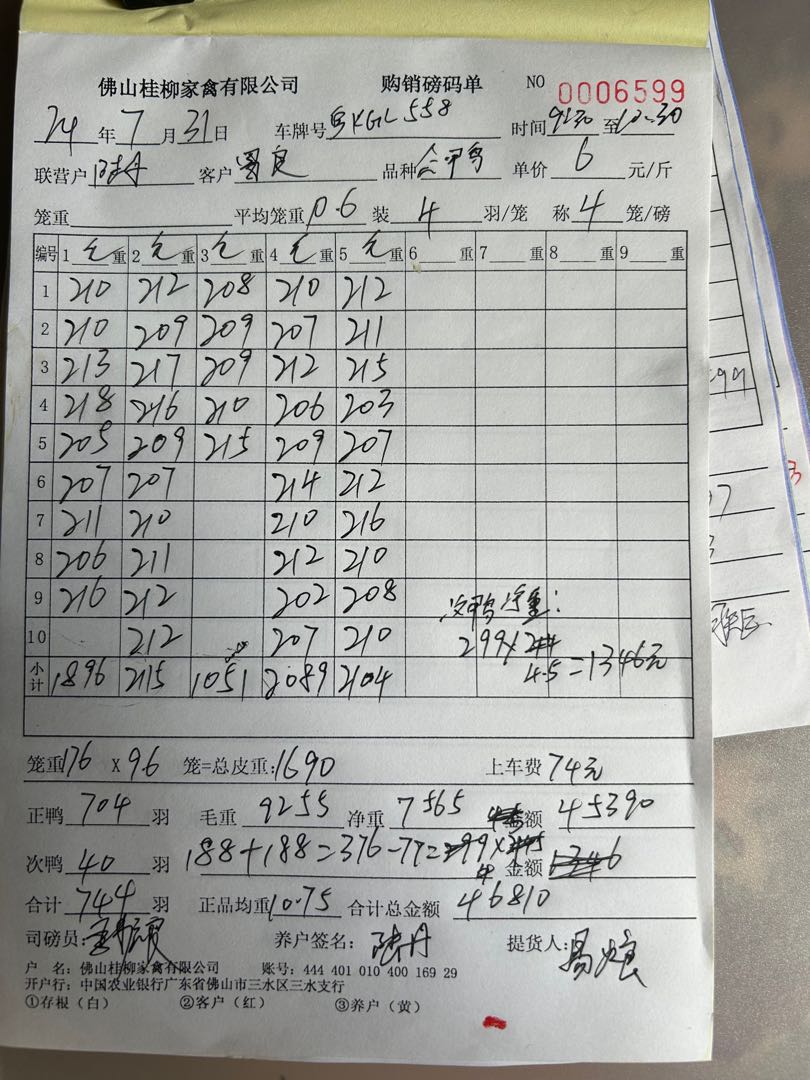 佛山桂柳家禽有限公司 购销磅码单 NO 0006599
24 年 7 月 31 日 车牌号 粤KGL558 时间 9:30 至 10:30
联营户 陆丹 客户 品种 单价 6 元/斤
笼重 平均笼重 9.6 装 4 羽/笼 称 4 笼/磅
编号 1 毛 重 2 毛 重 3 毛 重 4 毛 重 5 毛 重 6 重 7 重 8 重 9 重
1 210 212 208 210 212
2 210 209 209 207 211
3 213 217 209 212 215
4 218 216 210 206 203
5 205 209 215 209 207
6 207 207 214 212
7 211 210 210 216
8 206 211 212 210
9 216 212 202 208
次鸭净重:
10 212 207 210
299×
小计 1896 2115 1051 2089 2104
4.5=1346元
笼重 176 X 9.6 笼=总皮重: 1690 上车费 74元
正鸭 704 羽 毛重 9255 净重 7565 金额 45390
次鸭 40 羽 188+188=376-77=299× 金额 1346
合计 744 羽 正品均重 10.75 合计总金额 46810
司磅员: 养户签名: 陆丹 提货人:
户 名: 佛山桂柳家禽有限公司 账号: 444 401 010 400 169 29
开户行: 中国农业银行广东省佛山市三水区三水支行
①存根(白) ②客户(红) ③养户(黄)